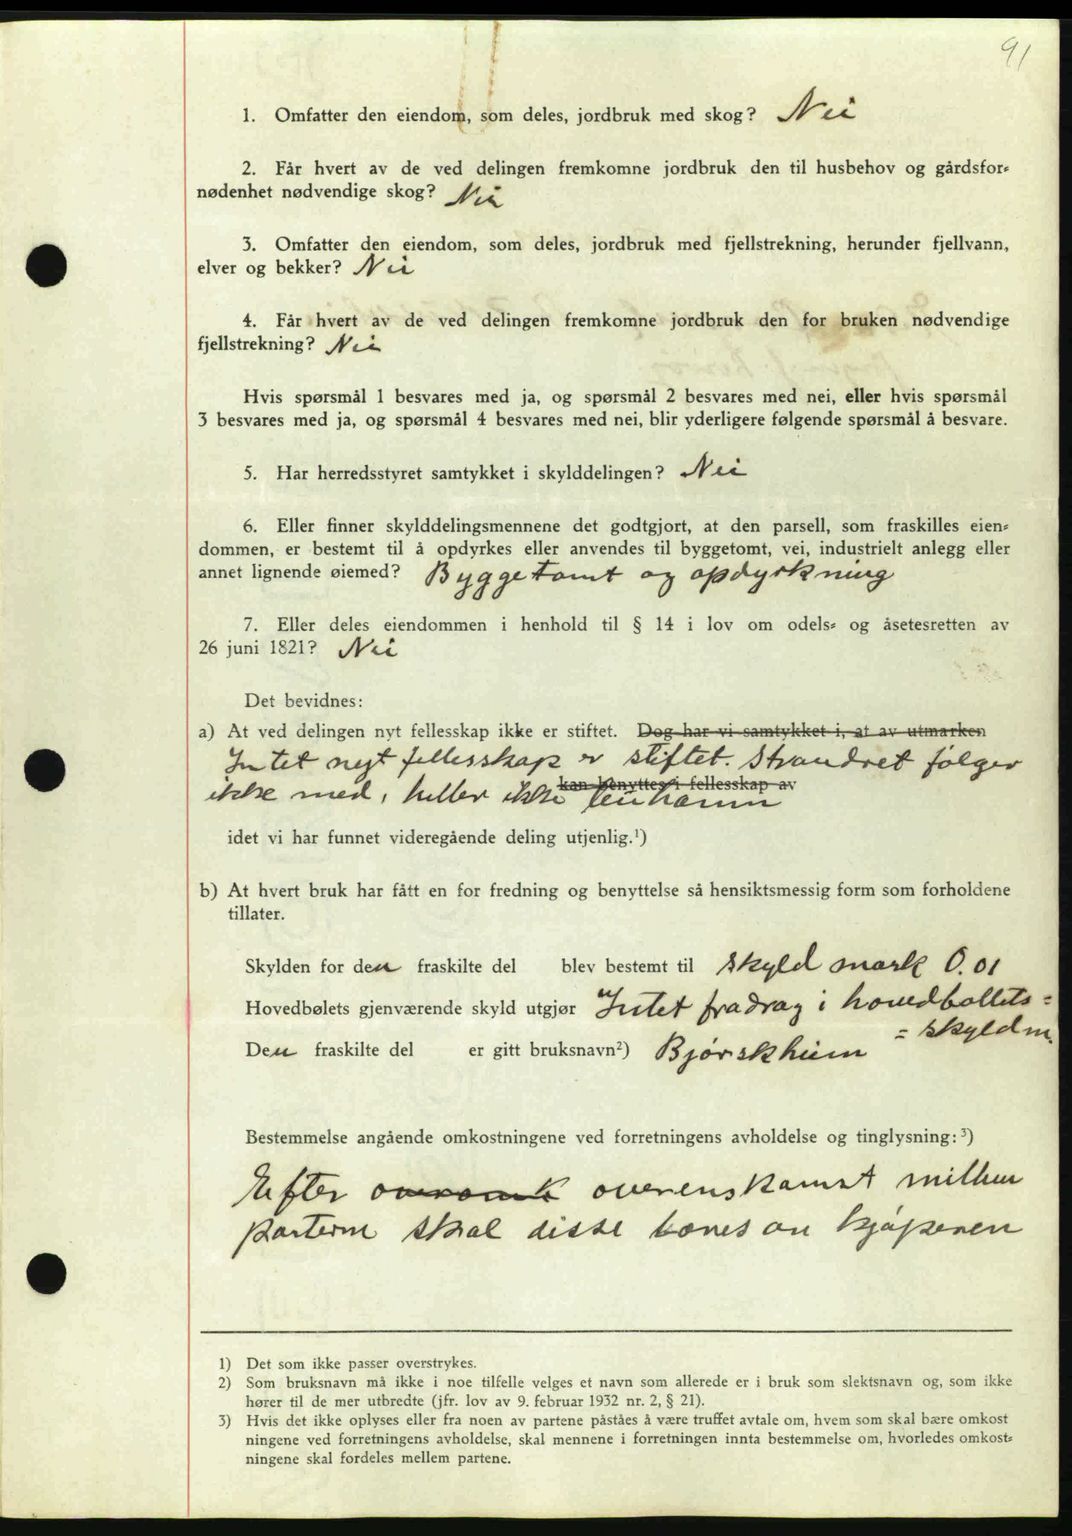 91
1. Omfatter den eiendom, som deles, jordbruk med skog? Nei
2. Får hvert av de ved delingen fremkomne jordbruk den til husbehov og gårdsfor-
nødenhet nødvendige skog? Nei
3. Omfatter den eiendom, som deles, jordbruk med fjellstrekning, herunder fjellvann,
elver og bekker? Nei
4. Får hvert av de ved delingen fremkomne jordbruk den for bruken nødvendige
fjellstrekning? Nei
Hvis spørsmål 1 besvares med ja, og spørsmål 2 besvares med nei, eller hvis spørsmål
3 besvares med ja, og spørsmål 4 besvares med nei, blir yderligere følgende spørsmål å besvare.
5. Har herredsstyret samtykket i skylddelingen? Nei
6. Eller finner skylddelingsmennene det godtgjort, at den parsell, som fraskilles eien-
dommen, er bestemt til å opdyrkes eller anvendes til byggetomt, vei, industrielt anlegg eller
annet lignende øiemed? Byggetomt og opdyrkning
7. Eller deles eiendommen i henhold til § 14 i lov om odels- og åsetesretten av
26 juni 1821? Nei
Det bevidnes:
a) At ved delingen nyt fellesskap ikke er stiftet. Dog har vi samtykket i, at av utmarken
Intet nyt fellesskap er stiftet. Strandret følger
kan benyttes i fellesskap av
ikke med, heller ikke
idet vi har funnet videregående deling utjenlig.¹)
b) At hvert bruk har fått en for fredning og benyttelse så hensiktsmessig form som forholdene
tillater.
Skylden for den fraskilte del blev bestemt til skyld mark 0.01
Hovedbølets gjenværende skyld utgjør Intet fradrag i hovedbøllets=
= skyld m.
Den fraskilte del er gitt bruksnavn²) Bjørskheim
Bestemmelse angående omkostningene ved forretningens avholdelse og tinglysning:³)
Efter overomk overenskomst mellem
parterne skal disse bæres av kjøperen
1) Det som ikke passer overstrykes.
2) Som bruksnavn må ikke i noe tilfelle velges et navn som allerede er i bruk som slektsnavn og, som ikke
hører til de mer utbredte (jfr. lov av 9. februar 1932 nr. 2, § 21).
3) Hvis det ikke oplyses eller fra noen av partene påståes å være truffet avtale om, hvem som skal bære omkost
ningene ved forretningens avholdelse, skal mennene i forretningen innta bestemmelse om, hvorledes omkost-
ningene skal fordeles mellem partene.